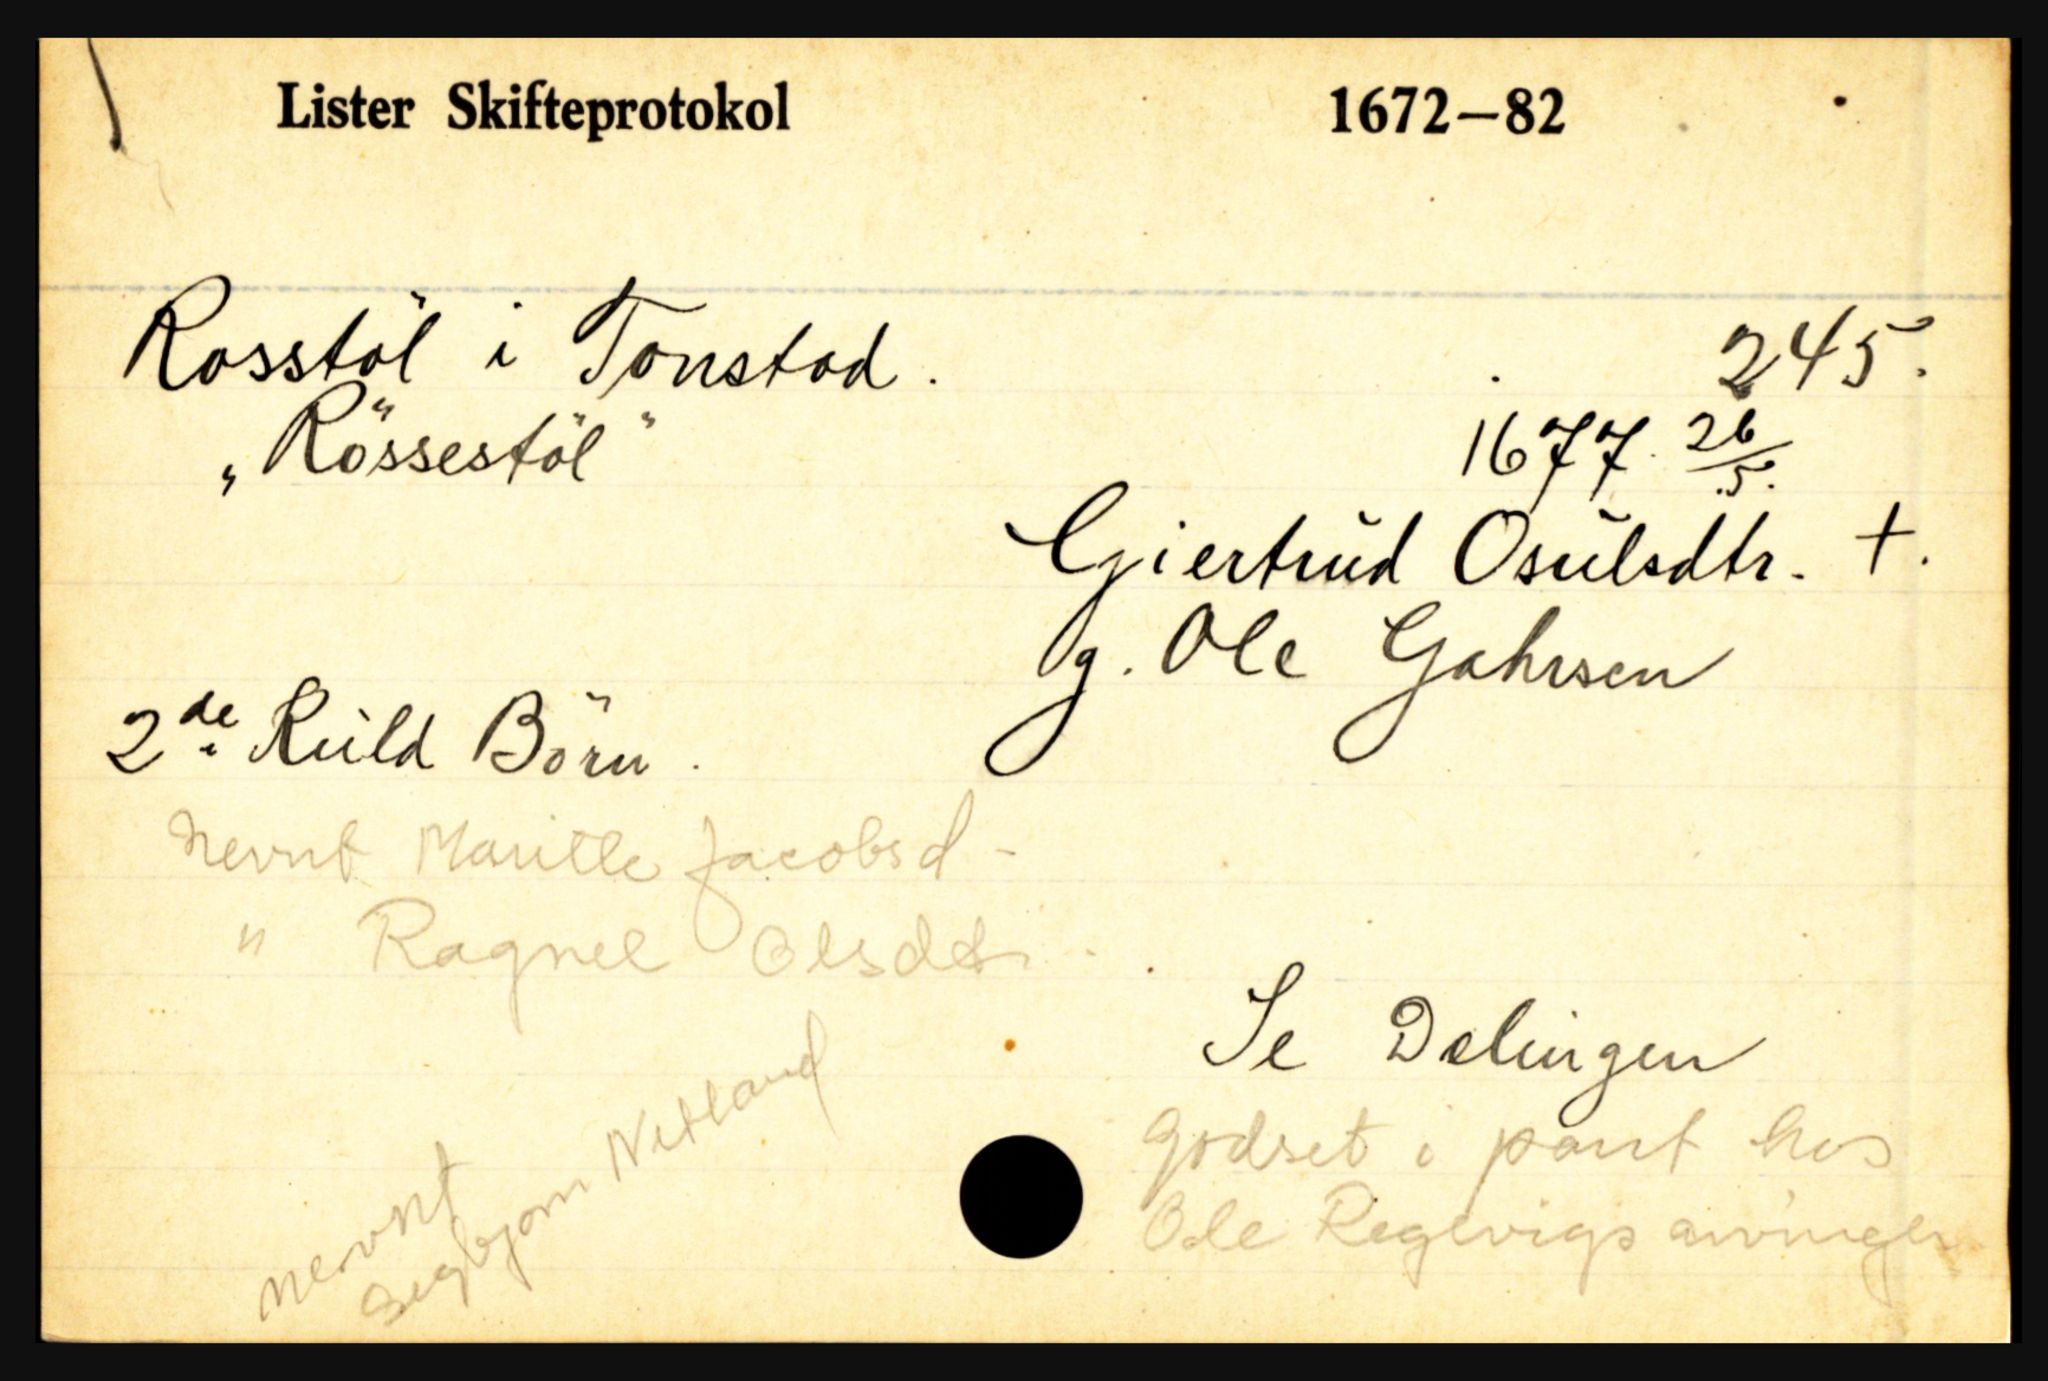 Lister Skifteprotokol 1672–82
Rosstöl i Tonstad. 245.
„Rössestöl" 1677 26/5.
Giertrud Osulsdtr. +.
g. Ole Gahrsen
2de Kuld Börn.
nevnt Maritte Jacobsd -
" Ragnel Olsdtr
Se Delingen
nevnt
Segbjørn Netland
Godset i pant hos
Ole Regevigs arvinger